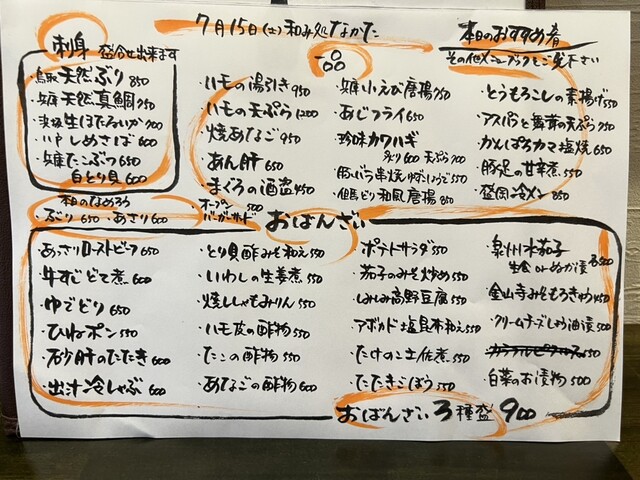 7月15日(土) 和み処なかた
本日のおすすめ肴
その他メニューブックもご覧下さい
刺身 盛合せ出来ます
鳥取天然ぶり 850
知床天然真鯛 950
浜坂生ほたるいか 900
しめさば 600
知床たこぶつ 650
白とり貝 600
本日のなめろう
・ぶり 650 ・あさり 600
一品
・ハモの湯引き 950
・ハモの天ぷら 1200
・焼あなご 950
・あん肝 650
・まぐろの酒盗 450
・オープンバーガーサンド 500
・知床小えび唐揚 750
・あじフライ 650
・珍味カワハギ
炙り 600 天ぷら 700
・豚バラ串焼 550
・但馬どり和風唐揚 850
・とうもろこしの素揚げ 550
・アスパラと舞茸の天ぷら 750
・かんぱちカマ塩焼 650
・豚足の甘辛煮 550
・盛岡冷メン 850
おばんざい
・あさりローストビーフ 650
・牛すじどて煮 600
・ゆでどり 650
・ひねポン 550
・砂肝のたたき 600
・出汁冷しゃぶ 650
・とり貝酢みそ和え 550
・いわしの生姜煮 550
・焼ししゃもみりん 550
・ハモ皮の酢物 550
・たこの酢物 550
・あなごの酢物 600
・ポテトサラダ 550
・茄子のみそ炒め 550
・しみしみ高野豆腐 550
・アボカド塩昆布和え 550
・たけのこ土佐煮 550
・たたきごぼう 550
・泉州水茄子
生 or ぬか漬 各500
・金山寺みそもろきゅう 450
・クリームチーズしょう油漬 500
・カラフルピクルス 550
・白菜のお漬物 500
おばんざい3種盛 900